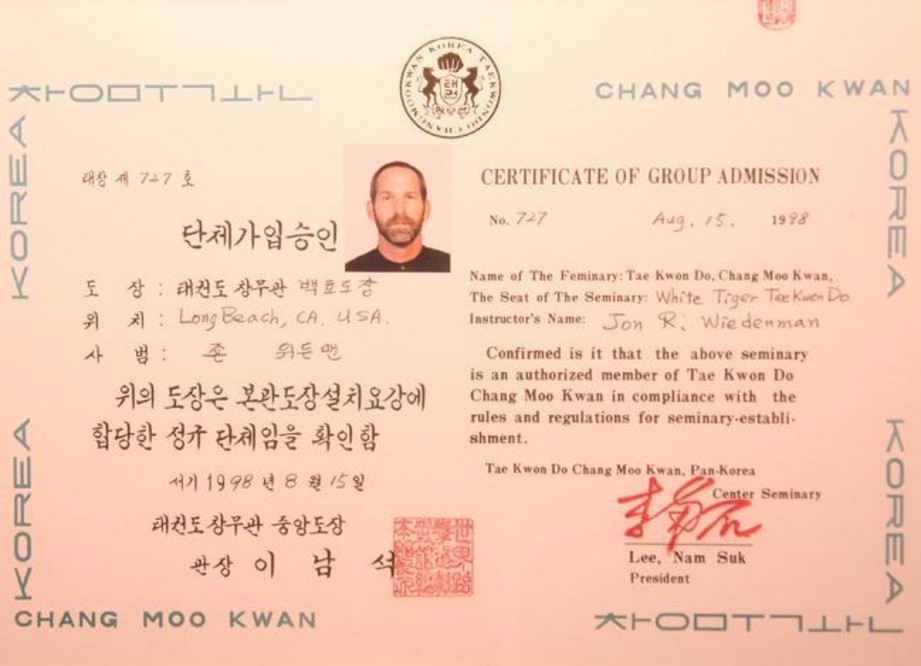 KOREA TAEKWONDO CHANGMOOKWAN
태권
ㅊㅏㅇㅁㅜㄱㅗㅏㄴ
CHANG MOO KWAN
KOREA
KOREA
태장 제 727 호
단체가입승인
도 장 : 태권도 창무관 백호도장
위 치 : Long Beach, CA. USA.
사 범 : 존 위든맨
위의 도장은 본관도장설치요강에
합당한 정규 단체임을 확인함
서기 1998 년 8 월 15 일
태권도 창무관 중앙도장
관장 이 남 석
CERTIFICATE OF GROUP ADMISSION
No. 727 Aug. 15. 1998
Name of The Feminary: Tae Kwon Do, Chang Moo Kwan,
The Seat of The Seminary: White Tiger Tae Kwon Do
Instructor's Name: Jon R. Wiedenman
Confirmed is it that the above seminary
is an authorized member of Tae Kwon Do
Chang Moo Kwan in compliance with the
rules and regulations for seminary-establi-
shment.
Tae Kwon Do Chang Moo Kwan, Pan-Korea
Center Seminary
Lee, Nam Suk
President
KOREA
KOREA
CHANG MOO KWAN
ㅊㅏㅇㅁㅜㄱㅗㅏㄴ